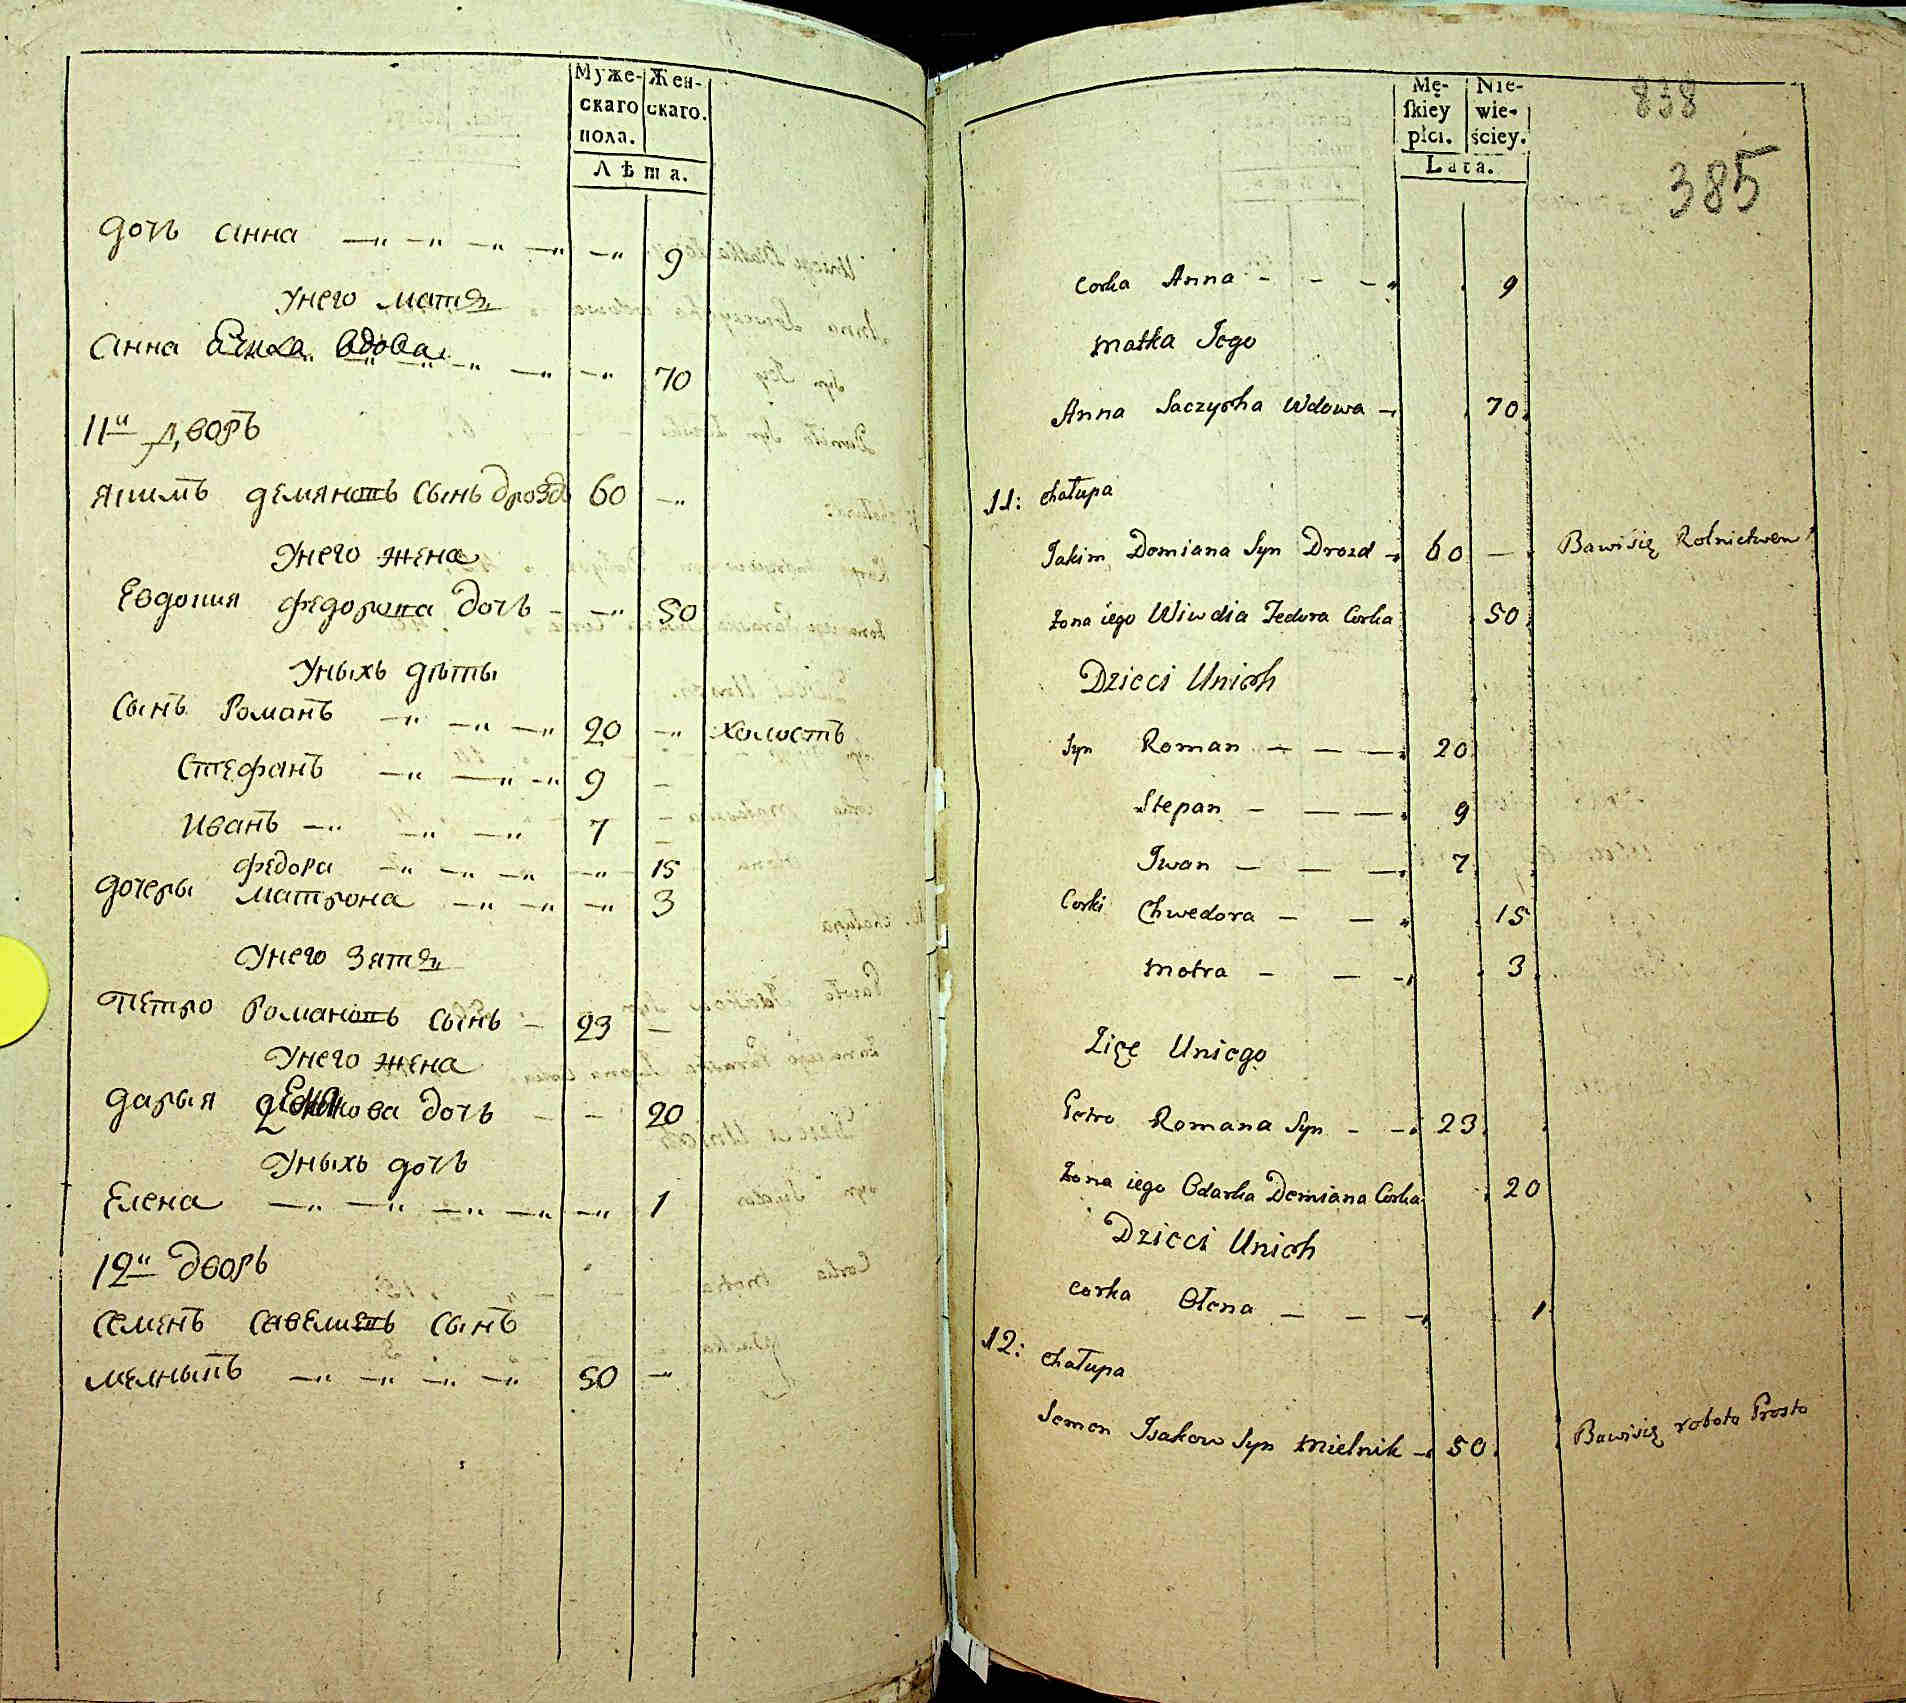 Муже- Жен-
скаго скаго.
пола.
Лѣта.
дочь анна 9
унего матъ
анна вдова 70
11й дворъ
якимъ демяновъ сынъ дрозд 60
унего жена
Евдокия федорова дочь 50
уныхъ дѣты
сынъ Романъ 20 холостъ
Стефанъ 9
иванъ 7
федора 15
дочеры матрона 3
унего зять
петро Романовъ сынъ 23
унего жена
дарыя дочь 20
уныхъ дочь
Елена 1
12й дворъ
семенъ сынъ
мелныкъ 50
838
385
Mę- Nie-
skiey wie-
płci. ściey.
Lata.
Corka Anna 9
Matka Jego
Anna Saczycha Wdowa 70
11: Chałupa
Jakim Demiana Syn Drozd 60 Bawi się Rolnictwem
Żona iego Wiwdia Fedora Corka 50
Dzieci Unich
Syn Roman 20
Stepan 9
Iwan 7
Corki Chwedora 15
Motra 3
Zięć Uniego
Petro Romana Syn 23
Żona iego Odarka Demiana Corka 20
Dzieci Unich
Corka Ołena 1
12: Chałupa
Semen Isakow Syn Mielnik 50 Bawi się roboto Prosto